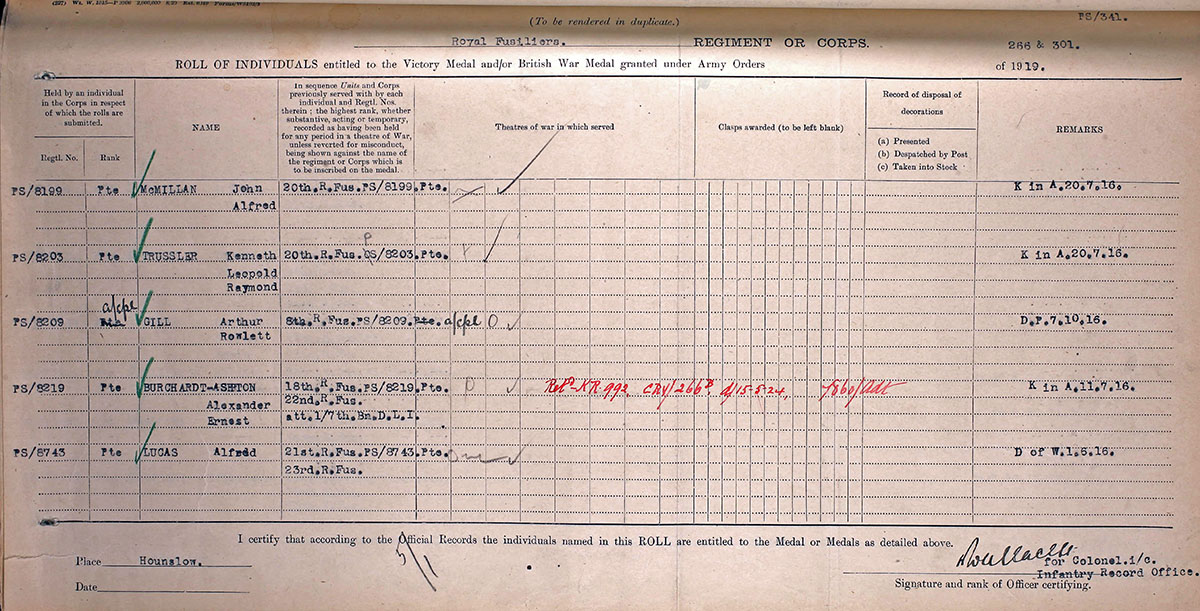 (To be rendered in duplicate.)
PS/341.
Royal Fusiliers. REGIMENT OR CORPS. 266 & 301.
ROLL OF INDIVIDUALS entitled to the Victory Medal and/or British War Medal granted under Army Orders of 1919.
Held by an individual
in the Corps in respect
of which the rolls are
submitted.
Regtl. No. Rank
NAME
In sequence Units and Corps
previously served with by each
individual and Regtl. Nos.
therein ; the highest rank, whether
substantive, acting or temporary,
recorded as having been held
for any period in a theatre of War,
unless reverted for misconduct,
being shown against the name of
the regiment or Corps which is
to be inscribed on the medal.
Theatres of war in which served
Clasps awarded (to be left blank)
Record of disposal of
decorations
(a) Presented
(b) Despatched by Post
(c) Taken into Stock
REMARKS
PS/8199 Pte McMILLAN John 20th.R.Fus.PS/8199.Pte. K in A.20.7.16.
Alfred
PS/8203 Pte TRUSSLER Kenneth 20th.R.Fus.PS/8203.Pte. K in A.20.7.16.
Leopold
Raymond
a/cpl
PS/8209 GILL Arthur 8th.R.Fus.PS/8209.Pte. a/cpl O D.P.7.10.16.
Rowlett
PS/8219 Pte BURCHARDT-ASHTON 18th.R.Fus.PS/8219.Pte. KR.992. CRV/266B d/15.5.24. K in A.11.7.16.
Alexander 22nd.R.Fus.
Ernest att.1/7th.Bn.D.L.I.
PS/8743 Pte LUCAS Alfred 21st.R.Fus.PS/8743.Pte. D of W.1.6.16.
23rd.R.Fus.
I certify that according to the Official Records the individuals named in this ROLL are entitled to the Medal or Medals as detailed above.
Place Hounslow.
5/1
for Colonel.i/c.
Infantry Record Office.
Date
Signature and rank of Officer certifying.